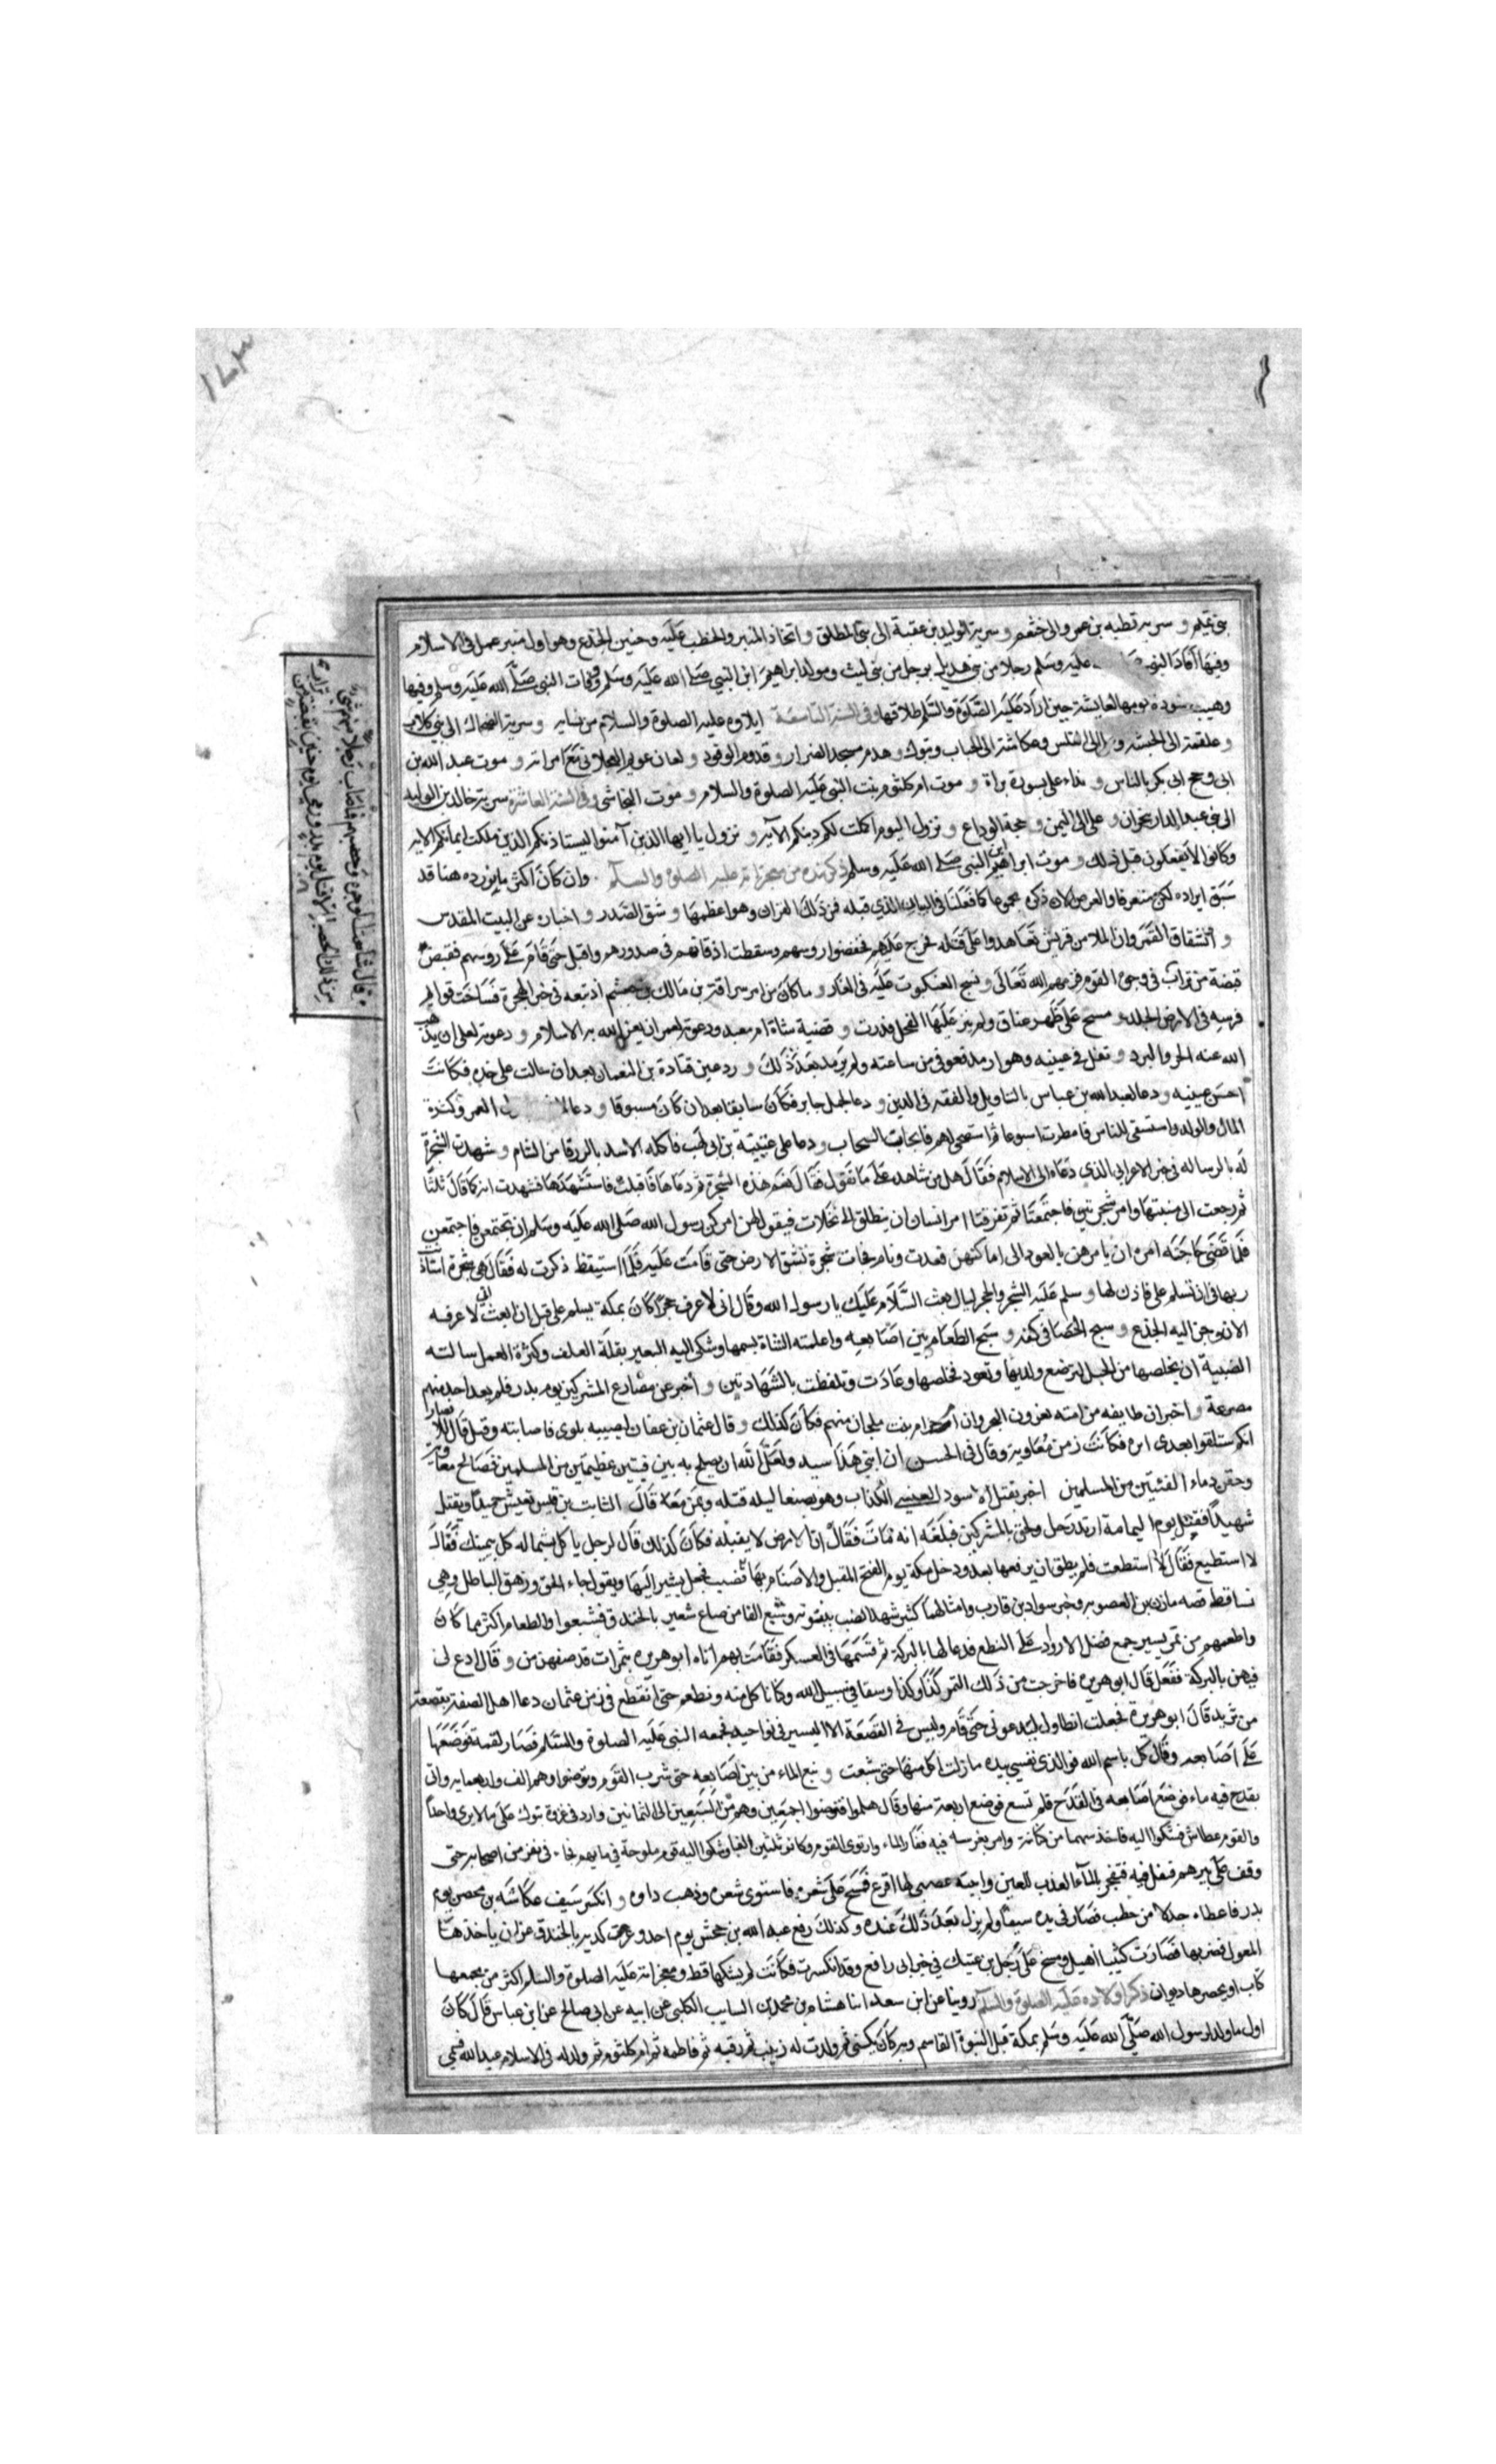 بنى تميم و سرية قطبه بن عمرو الى خثعم و سرية الوليد بن عقبة الى بنى المطلق و اتخاذ المنبر والخطب عليه و حنين الجذع وهو اول منبر عمل فى الاسلام
وفيها اقاد النبى عليه وسلم رجلا من بنى هذيل برجل من بنى ليث و مولد ابراهيم ابن النبى صلى الله عليه وسلم و وفات النبى صلى الله عليه وسلم وفيها
وهبت سودة يومها لعايشة حين اراد عليه الصلوة والسلم طلاقها وفى السنة التاسعة ايلاوه عليه الصلوة والسلام من نسايه و سرية الضحاك الى بنى كلاب
و علقمة الى الحبشه و الى الفلس و عكاشة الى الجباب و تبوك و هدم مسجد الضرار و قدوم الوفود و لعان عويمر العجلانى مع امراته و موت عبد الله بن
ابى و حج ابى بكر بالناس و نداء على بسورة براة و موت ام كلثوم بنت النبى عليه الصلوة والسلام و موت النجاشى وفى السنة العاشرة سرية خالد بن الوليد
الى بنى عبد المدار بنجران و على الى اليمن و حجة الوداع و نزول اليوم اكملت لكم دينكم الآيه و نزول يا ايها الذين آمنوا ليستاذنكم الذين ملكت ايمانكم الايه
وكانوا لا يفعلونى قبل ذلك و موت ابراهيم ابن النبى صلى الله عليه وسلم ذكر نبذه من معجزاته عليه الصلوة والسلام وان كان اكثر ما نورده هنا قد
سبق ايراده لكن متفرقا والغرض الان ذكره مجموعا كما فعلنا فى الباب الذي قبله فمن ذلك القران وهو اعظمها و شق الصدر و اخباره عن البيت المقدس
و انشقاق القمر وان الملا من قريش تعاهدوا على قتله فخرج عليهم فخفضوا روسهم و سقطت اذقانهم فى صدورهم واقبل حتى قام على روسهم فقبض
قبضة من تراب فى وجوه القوم فهزمهم الله تعالى و نسج العنكبوت عليه فى الغار و ما كان من امر سراقة بن مالك بن جعشم اذ تبعه فى خبر الهجرة فساخت قوايم
فرسه فى الارض الجلد و مسح على ظهر عناق ولم ينز عليها الفحل فدرت و قضية شاة ام معبد و دعوته لعمر ان يعز الله به الاسلام و دعوته لعلى ان يذهب
الله عنه الحر والبرد و تفل فى عينيه وهو ارمد فعوفى من ساعته ولم يرمد بعد ذلك و رد عين قتادة بن النعمان بعد ان سالت على خده فكانت
احسن عينيه و دعا لعبد الله بن عباس بالتاويل والفقه فى الدين و دعا لجمل جابر فكان سابقا بعد ان كان مسبوقا و دعا العمر وكثرة
المال والولد و استسقى للناس فامطرت اسبوعا ثم استصحى لهم فانجابت السحاب و دعا على عتيبة بن ابى لهب فاكله الاسد بالزرقا من الشام و شهدت الشجرة
له بالرساله فى خبر الاعرابى الذي دعاه الى الاسلام فقال هل من شاهد على ما تقول فقال نعم هذه الشجرة ثم دعاها فاقبلت فاستشهدها فشهدت انه كما قال ثلثا
ثم رجعت الى منبتها وامر شجرتين فاجتمعتا ثم تفرقتا امر انسان ان ينطلق الى نخلات فيقول لهن امركن رسول الله صلى الله عليه وسلم ان تجتمعن فاجتمعن
فلما قضى حاجته امره ان يامرهن بالعود الى اماكنهن فعدت و نام فجات شجرة تشق الارض حتى قامت عليه فلما استيقظ ذكرت له فقال هى شجرة استاذنت
ربها فى ان تسلم على فاذن لها و سلم عليه الشجر والحجر ليالى بعث السلام عليك يا رسول الله وقال انى لاعرف حجرا كان بمكة يسلم على قبل ان ابعث انى لاعرفه
الان و حن اليه الجذع و سبح الحصا فى كفه و سبح الطعام بين اصابعه واعلمته الشاة بسمها و شكى اليه البعير بقلة العلف وكثرة العمل سالته
الضبية ان يخلصها من الحبل لترضع ولديها وتعود فخلصها وعادت و تلفظت بالشهادتين و اخبر عن مصارع المشركين يوم بدر فلم يعد احد منهم
مصرعة و اخبر ان طايفه من امته يغزون البحر وان ام حرام بنت ملحان منهم فكان كذلك و قال عثمان بن عفان لصيبه بلوى فاصابته وقتل قال للانصار
انكم ستلقوا بعدى اثره فكانت زمن معاويه و قال فى الحسن ان ابنى هذا سيد ولعل الله ان يصلح به بين فيتين عظيمتين من المسلمين فصالح معاوية
وحقن دماء الفئتين من المسلمين اخبر بقتل الاسود العنسى الكذاب وهو بصنعا ليله قتله و بمن معه قال الثابت بن قيس تعيش حميدا و يقتل
شهيدا فقتل يوم اليمامة ارتد رجل ولحق بالمشركين فبلغه انه مات فقال ان الارض لا يقبله فكان كذلك قال لرجل ياكل بشماله كل بيمينك فقال
لا استطيع فقال لا استطعت فلم يطق ان يرفعها بعد و دخل مكة يوم الفتح المقبل والاصنام بها قضيب فجعل يشير اليها ويقول جاء الحق وزهق الباطل وهى
تساقط قصه مازن بن الغضوبه و خبر سواد بن قارب و امثالها كثير شهد الضب بنبوته و شبع الفا من صاع شعير بالخندق فشبعوا والطعام اكثر مما كان
واطعمهم من تمر يسير جمع فضل الازواد على النطع فدعا لها بالبركة ثم قسمها فى العسكر فقامت بهم اتاه ابو هريره بثمرات قد صفهن من و قال ادع لى
فيهن بالبركة ففعل قال ابو هريره فاخرجت من ذلك التمر كذا وكذا وسقا فى سبيل الله وكنا ناكل منه و نطعم حتى انقطع فى زمن عثمان دعا اهل الصفة بقصعة
من ثريد قال ابو هريرة فجعلت اتطاول ليدعونى حتى قام وليس فى القصعة الا اليسير فى نواحيه فجمعه النبى عليه الصلوة والسلم فصار لقمة فوضعها
على اصابعه وقال كل باسم الله فوالذى نفسى بيده ما زلت اكل منها حتى شبعت و نبع الماء من بين اصابعه حتى شرب القوم و توضوا وهم الف واربعمايه واتى
بقدح فيه ماء فوضع اصابعه فى القدح فلم تسع فوضع اربعة منها وقال هلموا فتوضوا اجمعين وهم من السبعين الى الثمانين و ارد فى غزوة تبوك على ما لا يروى واحدا
والقوم عطاش فشكوا اليه فاخذ سهما من كنانته وامر بغرسه فيه ففار الماء وارتوى القوم و كانوا ثلثين الفا و شكوا اليه قوم ملوحة فى مايهم فجاء فى نفر من اصحابه حتى
وقف على بيرهم فتفل فيه فتفجر بالماء العذب المعين و اتته بصبى لها اقرع فمسح على شعره فاستوى شعره و ذهب داوه و انكسر سيف عكاشه بن محصن يوم
بدر فاعطاه جذلا من حطب فصار فى يده سيفا ولم يزل بعد ذلك عنده و كذلك رفع عبد الله بن جحش يوم احد و عزت كديه بالخندق عن ان ياخذها
المعول فضربها فصارت كثيبا اهيل و مسح على رجل بن عتيك فى خبر ابى رافع وقد انكسرت فكانت لم يشكها قط و معجزاته عليه الصلوة والسلم اكثر من يجمعها
كتاب او يحصرها ديوان ذكر اولاده عليه الصلوة والسلم روينا عن ابن سعد انا هشام بن محمد بن السايب الكلبى عن ابيه عن ابى صالح عن ابن عباس قال كان
اول ما ولد لرسول الله صلى الله عليه وسلم بمكة قبل النبوة القاسم وبه كان يكنى ثم ولدت له زينب ثم رقيه ثم فاطمه ثم ام كلثوم ثم ولد له فى الاسلام عبد الله فسمى
قال شاهت الوجوه و حصبهم فما اصاب رجلا منهم شئ
من ذلك الحصباء الا قتل يوم بدر ورمى يوم حنين بقبضة من تراب